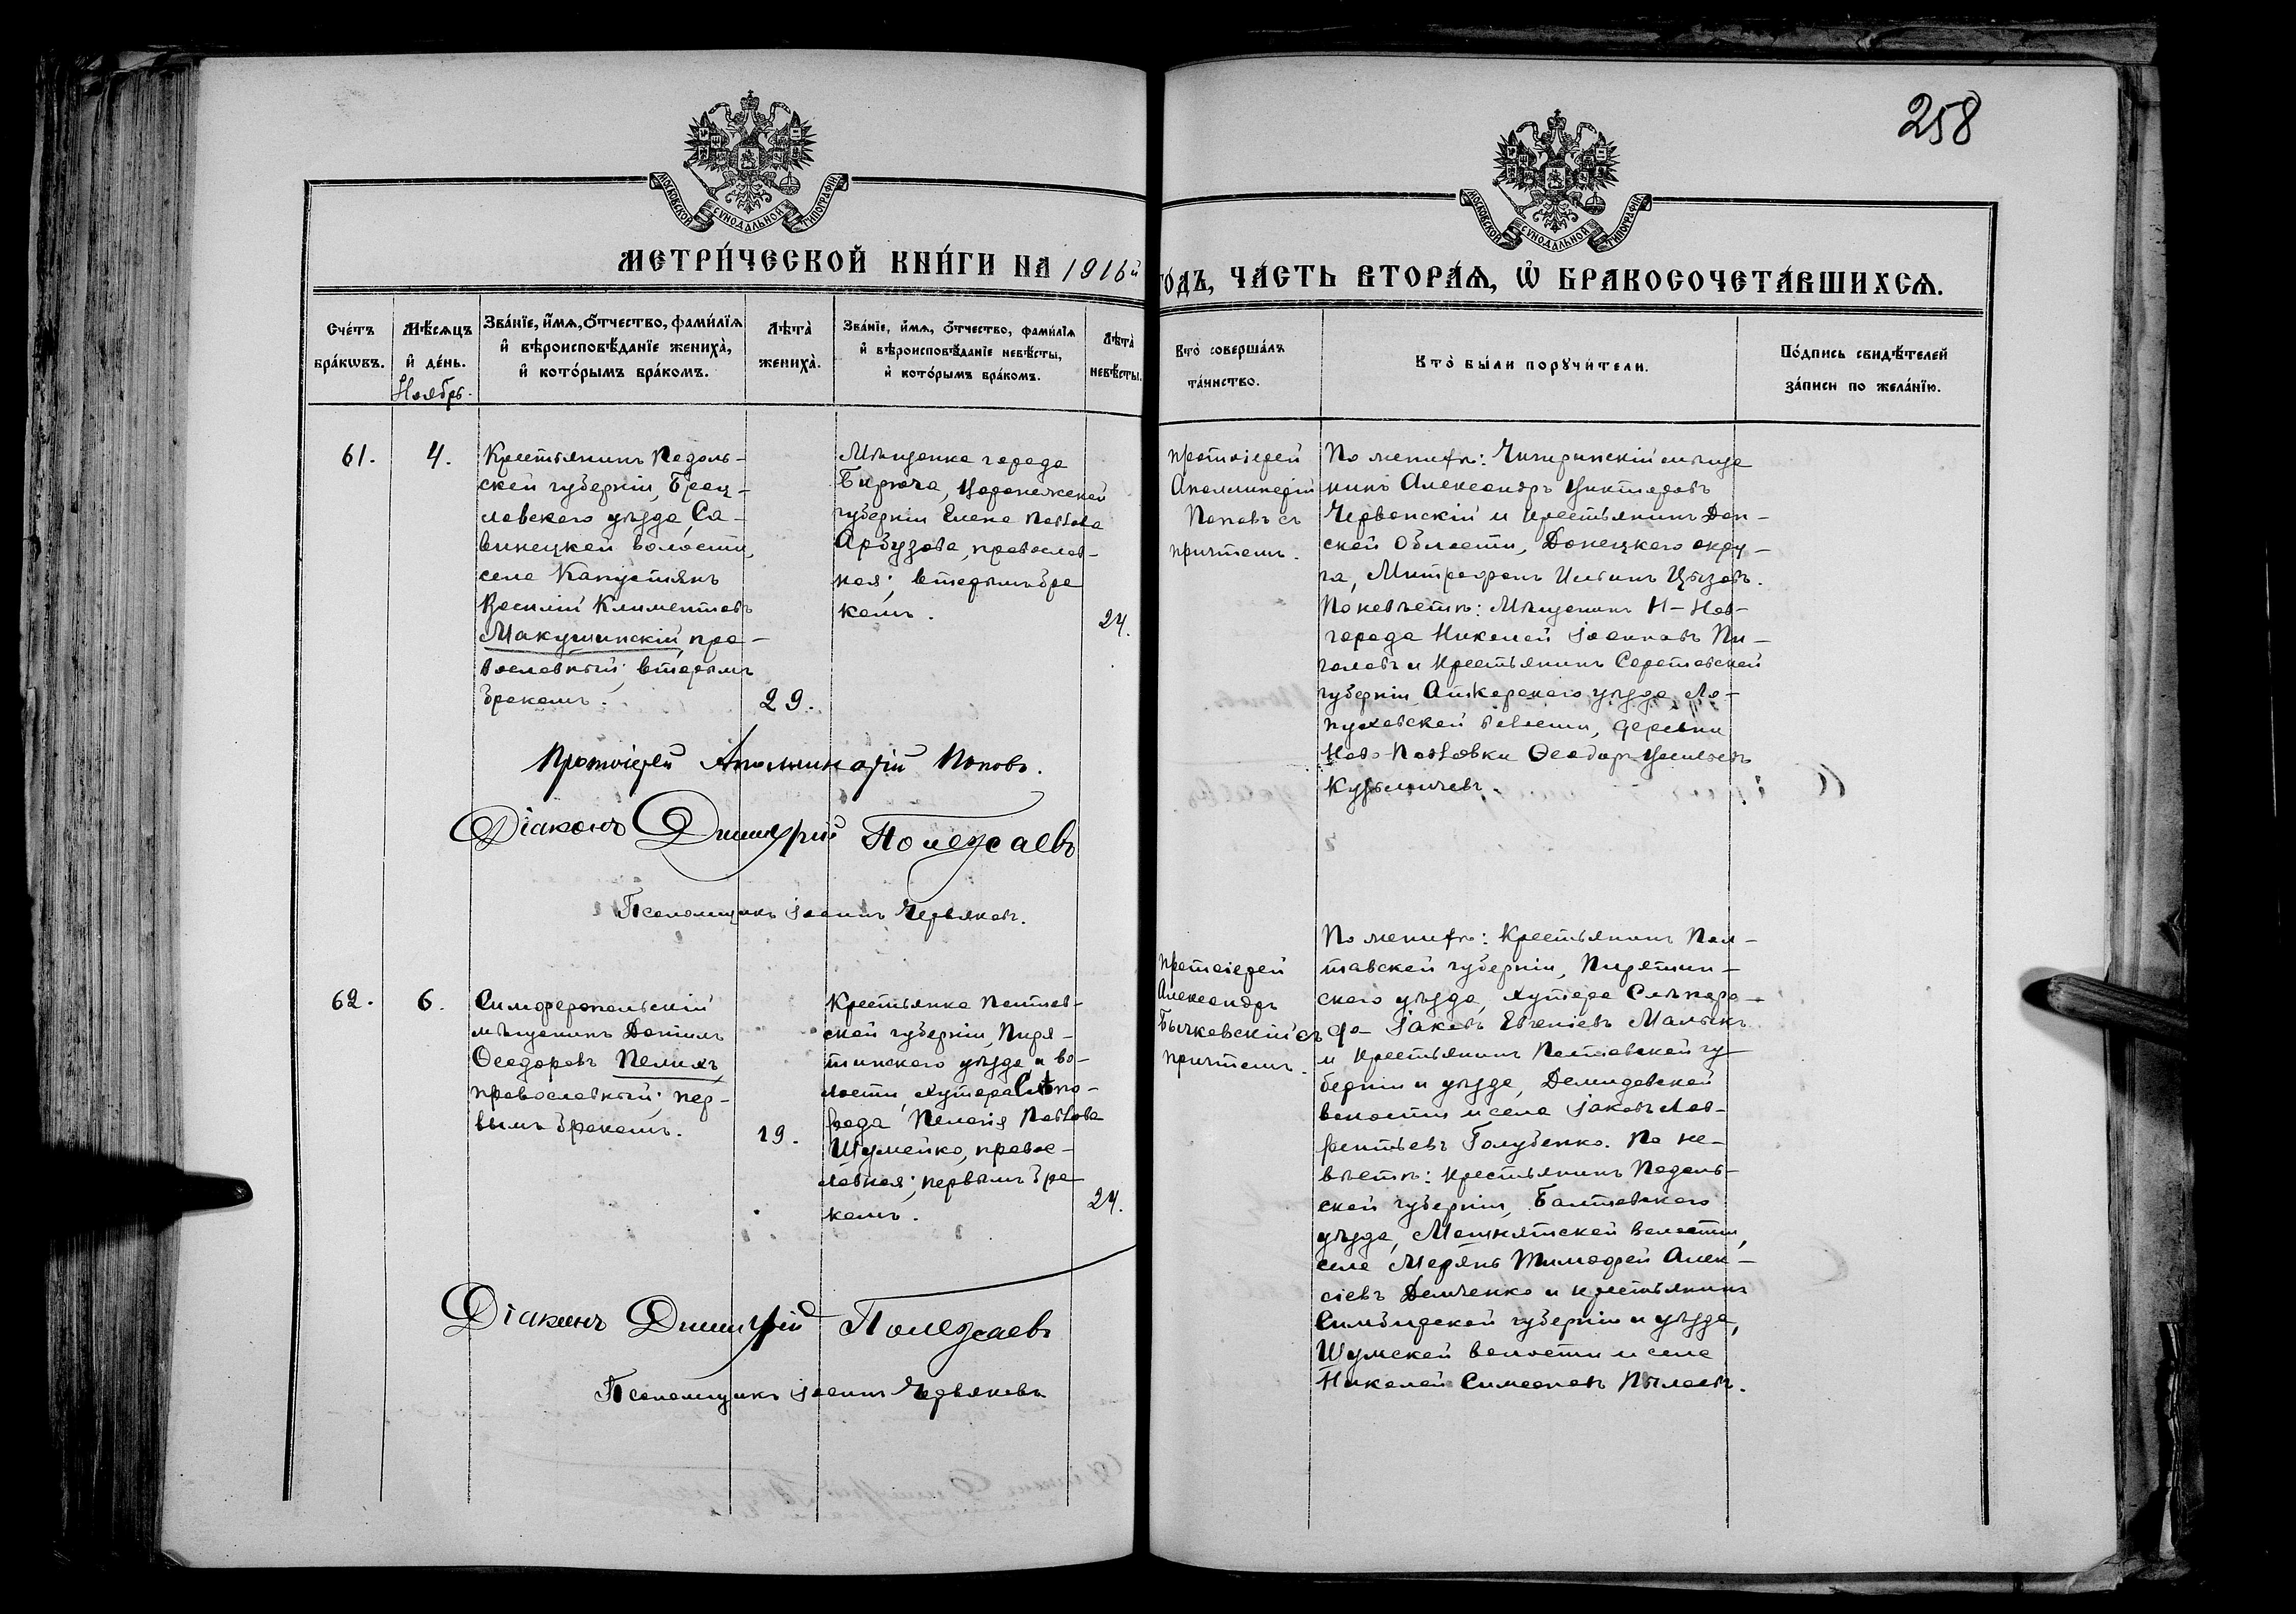 258
МОСКОВСКОЙ СѴНОДАЛЬНОЙ ТИПОГРАФІИ
МОСКОВСКОЙ СѴНОДАЛЬНОЙ ТИПОГРАФІИ
МЕТРИ́ЧЕСКОЙ КНИ́ГИ НА 1916й
ГО́ДЪ, ЧА́СТЬ ВТОРА́Ѧ, Ѡ БРАКОСОЧЕТА́ВШИХСѦ.
Сче́тъ бра́кѡвъ.
Мѣ́сѧцъ и де́нь.
Ноябрь.
Зва́нїе, и́мѧ, о́тчество, фами́лїѧ
и вѣроисповѣ́данїе жениха̀,
и кото́рымъ бра́комъ.
Лѣта̀ жениха̀.
Зва́нїе, и́мѧ, о́тчество, фами́лїѧ
и вѣроисповѣ́данїе невѣ́сты,
и кото́рымъ бра́комъ.
Лѣта̀ невѣ́сты.
Кто̀ соверша́лъ
та́инство.
Кто̀ бы́ли порꙋчи́тели.
По́дпись свидѣ́телей
за́писи по жела́нїю.
61.
4.
Крестьянинъ Подоль-
ской губерніи, Брац-
лавскаго уѣзда, Са-
винецкой волости,
села Капустянъ
Василій Климентовъ
Макушинскій, пра-
вославный; вторымъ
бракомъ.
29.
Мѣщанка города
Бирюча, Воронежской
губерніи Елена Павлова
Арбузова, православ-
ная; вторымъ бра
комъ.
24.
Протоіерей
Аполлинарій
Поповъ съ
причтомъ.
По женихѣ: Чигиринскій мѣща
нинъ Александръ Викторовъ
Червонскій и крестьянинъ Дон-
ской Области, Донецкаго окру-
га, Митрофанъ Ильинъ
По невѣстѣ: Мѣщанинъ Н-Нов-
города Николай Іоанновъ Пи-
галовъ и крестьянинъ Саратовской
губерніи Аткарскаго уѣзда, Ло-
пуховской волости, деревни
Ново-Павловки Ѳеодоръ Васильевъ
Кузьмичевъ.
Протоіерей Аполлинарій Поповъ.
Діаконъ Димитрій Полежаевъ
Псаломщикъ Іоаннъ Червяковъ.
62.
6.
Симферопольскій
мѣщанинъ Даніилъ
Ѳеодоровъ Пелихъ,
православный; пер-
вымъ бракомъ.
19.
Крестьянка Полтав-
ской губерніи, Пиря-
тинскаго уѣзда и во-
лости, хутора Слѣпо-
рода Пелагія Павлова
Шумейко, правос-
лавная; первымъ бра
комъ.
24.
Протоіерей
Александръ
Бычковскій съ
причтомъ.
По женихѣ: Крестьянинъ Пол-
тавской губерніи, Пирятин-
скаго уѣзда, хутора Слѣпоро-
да Іаковъ Евгеніевъ Малыкъ
и крестьянинъ Полтавской гу-
берніи и уѣзда, Демидовской
волости и села Іаковъ Лав-
рентьевъ Голубенко. По не-
вѣстѣ: крестьянинъ Подоль-
ской губерніи, Балтскаго
уѣзда, волости,
села Тимофей Алек-
сіевъ Демченко и крестьянинъ
Симбирской губерніи и уѣзда,
Шумской волости и села
Николай Симеоновъ
Діаконъ Димитрій Полежаевъ
Псаломщикъ Іоаннъ Червяковъ